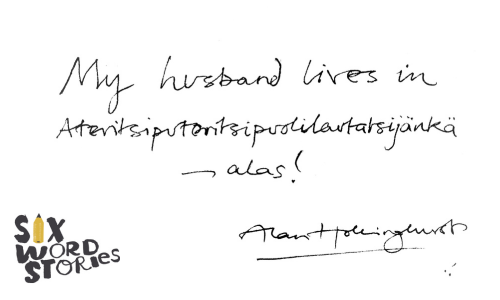 My husband lives in
Ateritsiputeritsipuolilautatsijänkä
— alas!
Alan Hollinghurst
SIX
WORD
STORIES